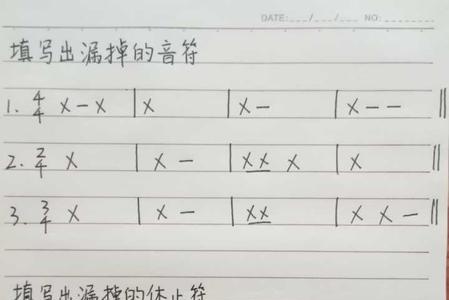 DATE:___/___/___ NO:
填写出漏掉的音符
1. 4/4 X - X | X | X - | X - - ||
2. 2/4 X | X - | X X X | X ||
3. 3/4 X | X - | X X | X X - ||
填写出漏掉的休止符